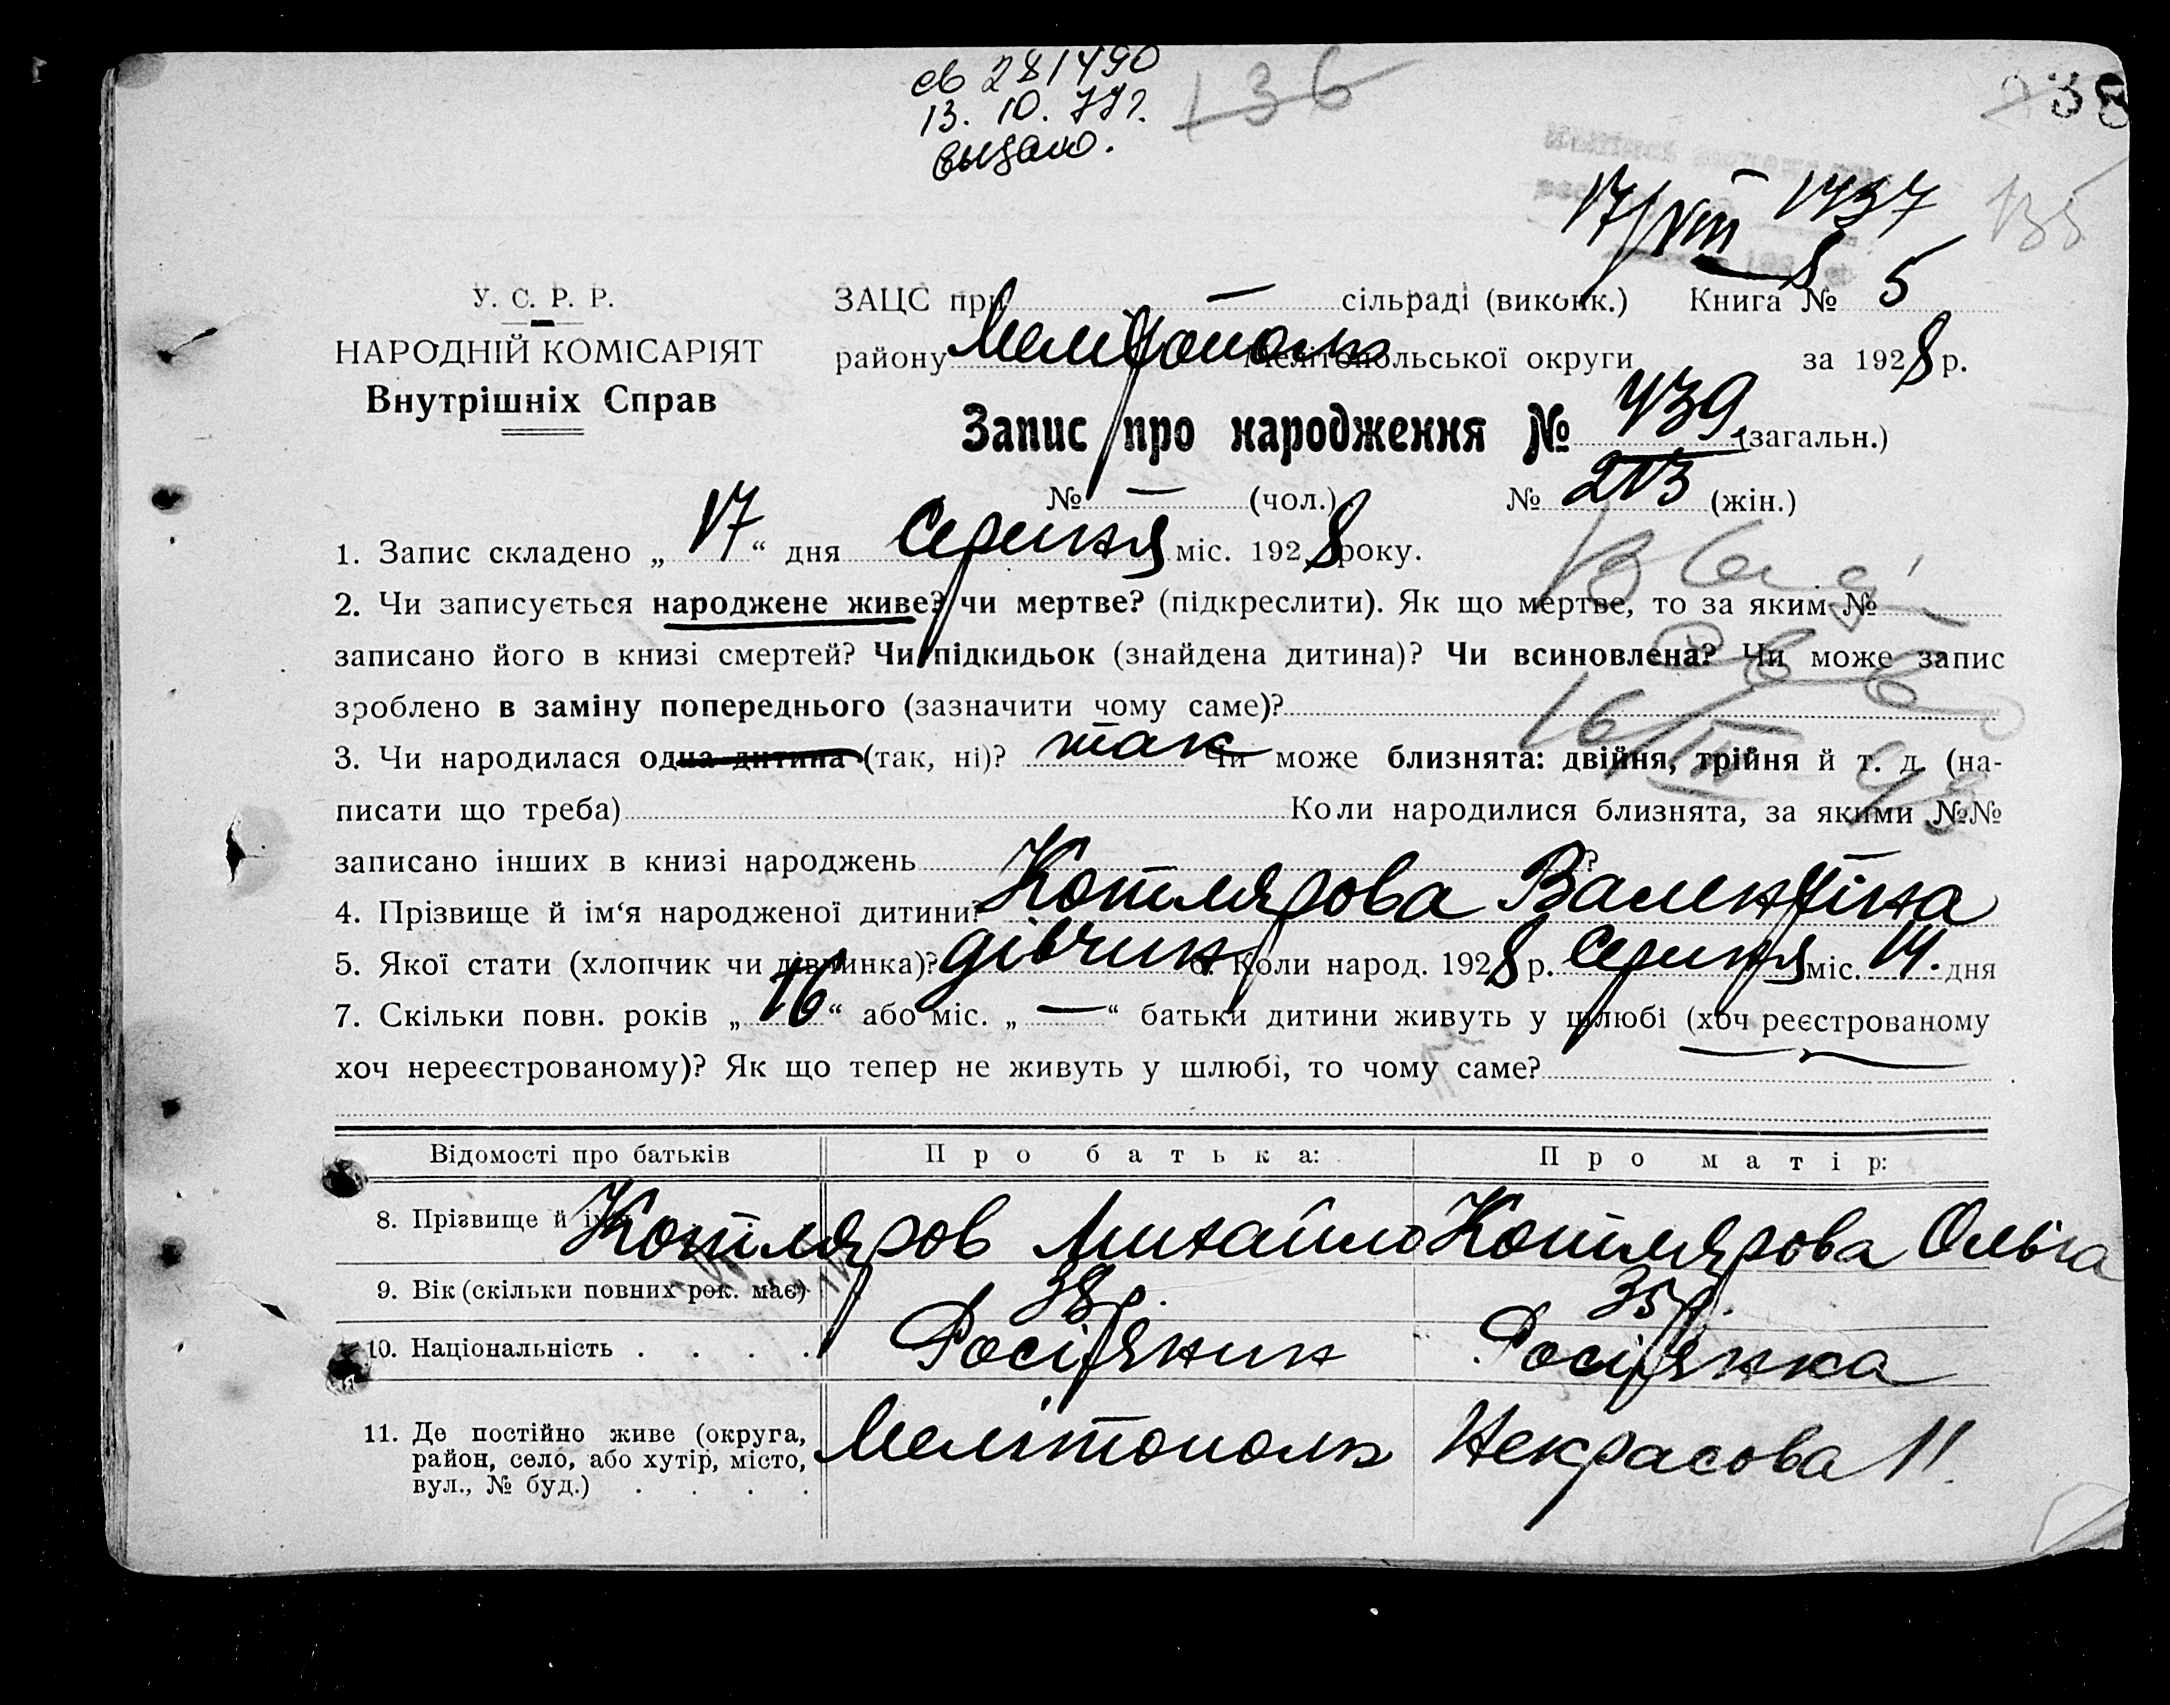 св 281490
13. 10. 77г.
выдано.
136
135
17/VIII 1437
У. С. Р. Р.
НАРОДНІЙ КОМІСАРІЯТ
Внутрішніх Справ
ЗАЦС при — сільраді (виконк.) Книга № 5
району Мелітополь Мелітопольської округи за 1928 р.
Запис про народження № 439 (загальн.)
№ — (чол.) № 213 (жін.)
1. Запис складено „17“ дня Серпня міс. 1928 року.
2. Чи записується народжене живе? чи мертве? (підкреслити). Як що мертве, то за яким №
записано його в книзі смертей? Чи підкидьок (знайдена дитина)? Чи всиновлена? Чи може запис
зроблено в заміну попереднього (зазначити чому саме)?
3. Чи народилася одна дитина (так, ні)? так Чи може близнята: двійня, трійня й т. д. (на-
писати що треба) Коли народилися близнята, за якими №№
записано інших в книзі народжень ?
4. Прізвище й ім‘я народженої дитини? Котлярова Валентіна
5. Якої стати (хлопчик чи дівчинка)? дівчин 6. Коли народ. 1928 р. Серпня міс. 14. дня
7. Скільки повн. років „16“ або міс. „—“ батьки дитини живуть у шлюбі (хоч реєстрованому
хоч нереєстрованому)? Як що тепер не живуть у шлюбі, то чому саме?
Відомості про батьків Про батька: Про матір:
8. Прізвище й ім'я Котляров Михайло Котлярова Ольга
9. Вік (скільки повних рок. має) 38р. 35р.
10. Національність . . . . Росіянин Росіянка
11. Де постійно живе (округа,
район, село, або хутір, місто,
вул., № буд.) . . . .
Мелітополь Некрасова 11.